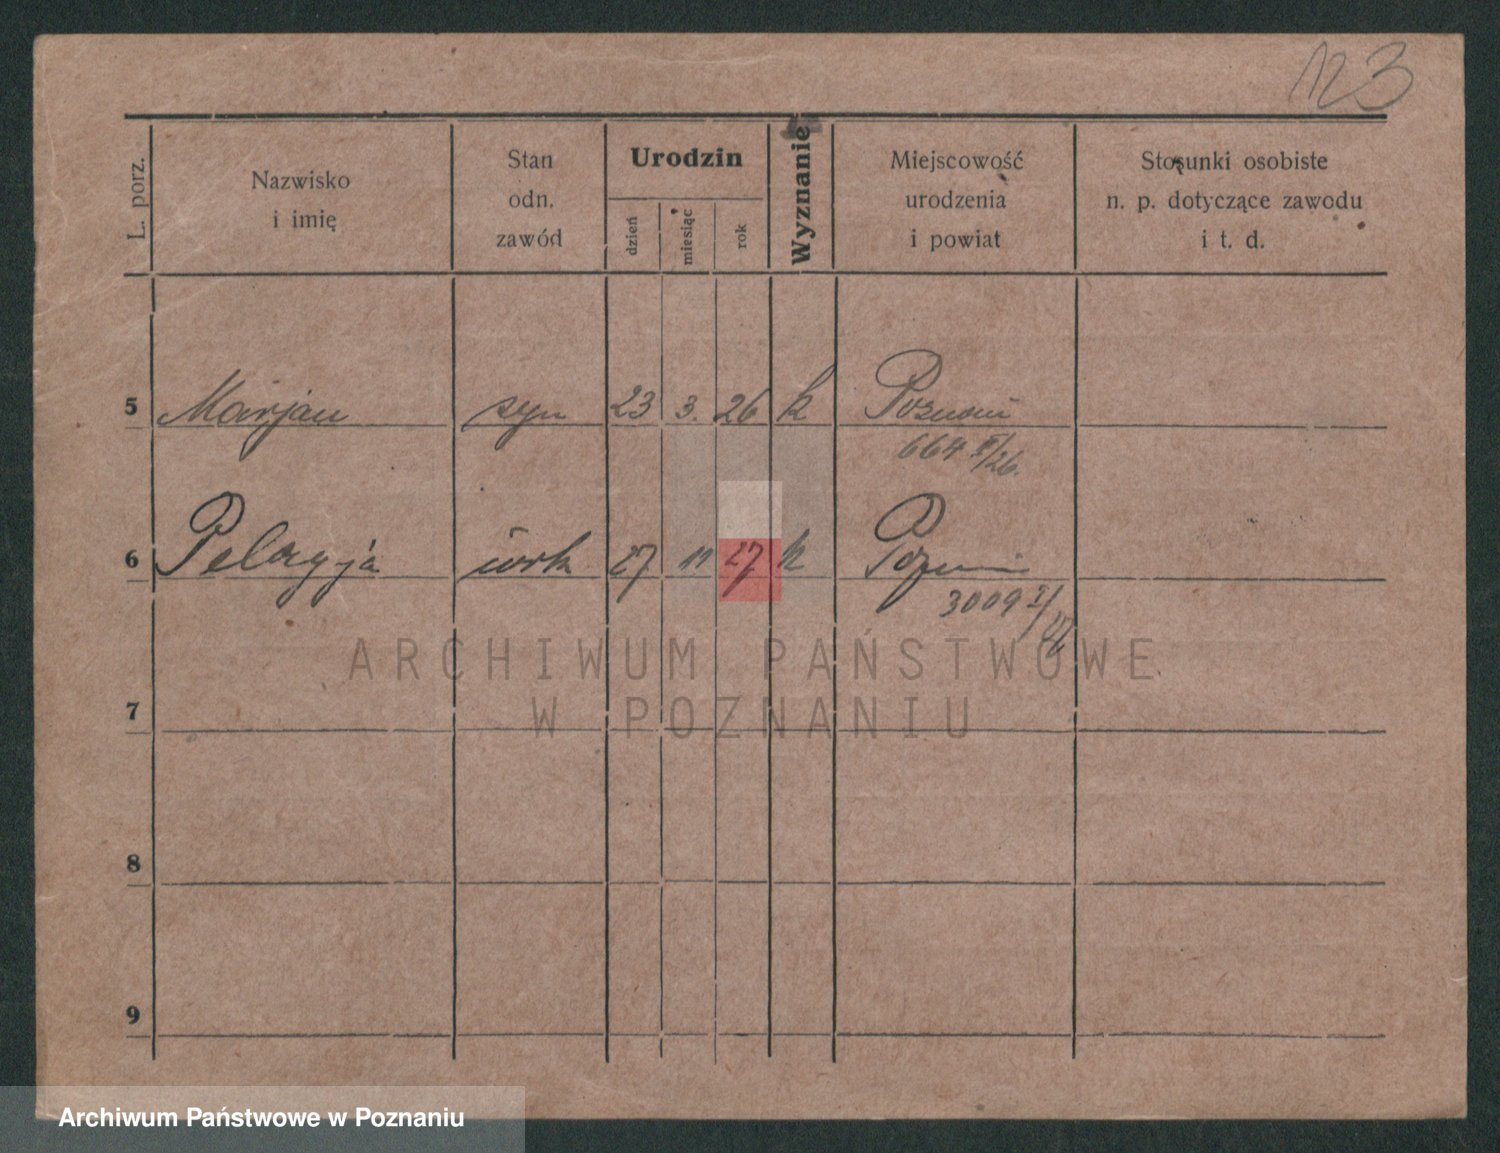 123
L. porz.
Nazwisko
i imię
Stan
odn.
zawód
Urodzin
dzień
miesiąc
rok
Wyznanie
Miejscowość
urodzenia
i powiat
Stosunki osobiste
n. p. dotyczące zawodu
i t. d.
5 Marjan syn 23 3. 26 k Poznań
664 II/26.
6 Pelagja 27 11 27 k Poznań
3009 I/27
7
8
9
ARCHIWUM PAŃSTWOWE
W POZNANIU
Archiwum Państwowe w Poznaniu